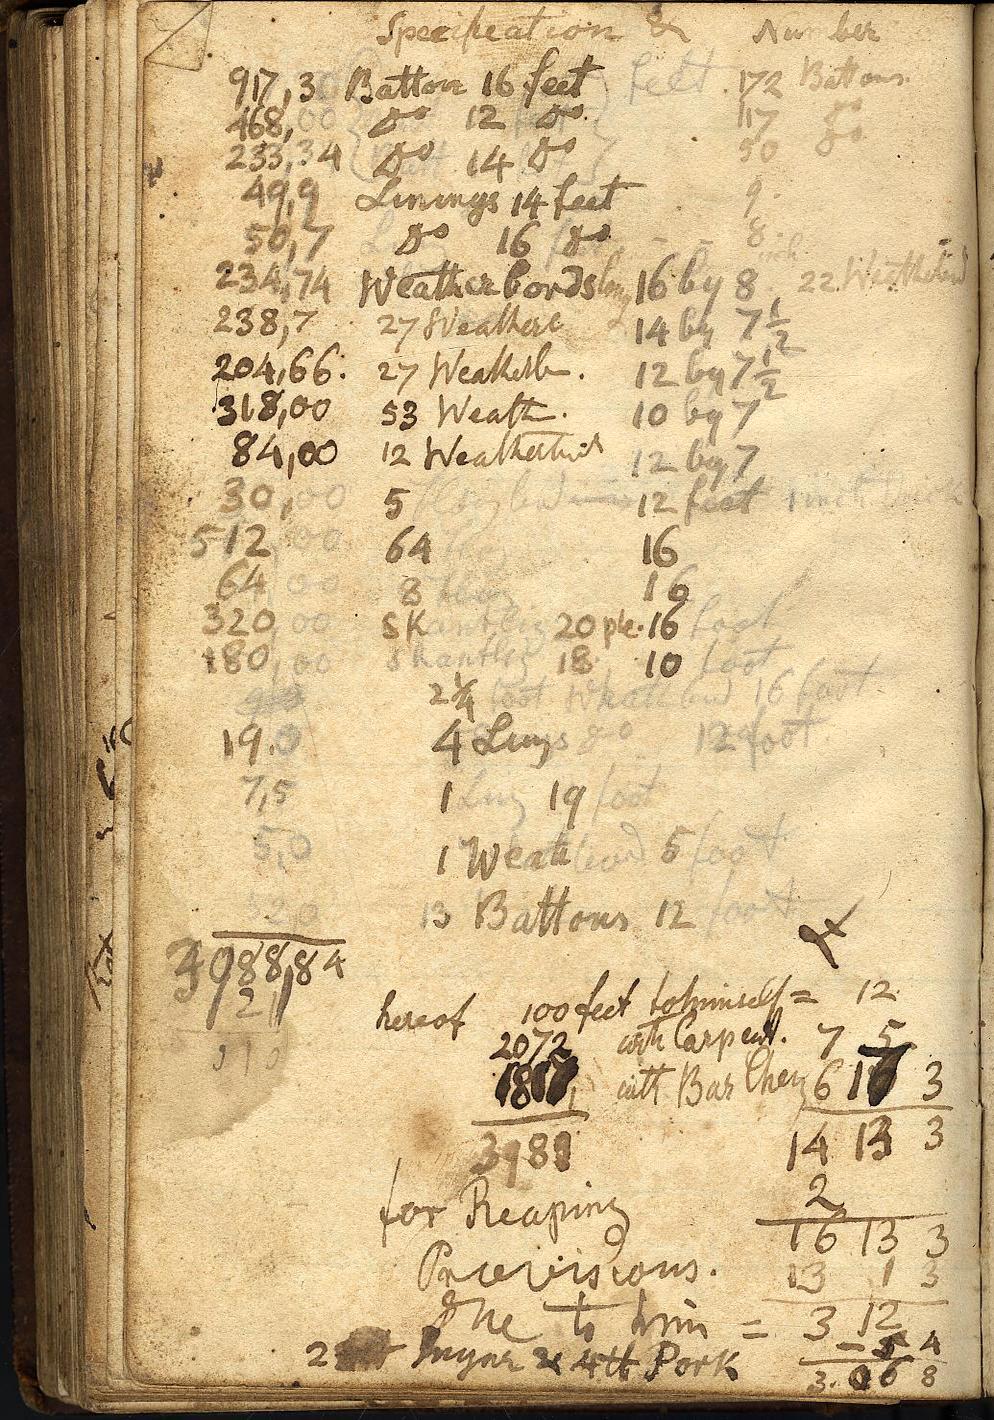 Specification & Number
917,3 Batton 16 feet feet 172 Battons
468,00 Do 12 Do 117 Do
233,34 Do 14 Do 50 Do
49,9 Linings 14 feet 9
50,7 Do 16 Do 8
234,74 Weatherbords long 16 by 8 inch 22 Weatherbord
238,7 27 Weatherb 14 by 7 1/2
204,66 27 Weatherb. 12 by 7 1/2
318,00 53 Weath. 10 by 7
84,00 12 Weatherbord 12 by 7
30,00 5 12 feet 1 inch thick
512,00 64 16
64,00 8 16
320,00 Skantling 20 pie. 16 foot
180,00 Skantling 18 10 foot
2 1/4 foot Weatherbord 16 foot
19.0 4 Lings do 12 foot.
7,5 1 Ling 19 foot
5,0 1 Weatherbord 5 foot
520 13 Battons 12 foot
3988,84
21
hereof 100 feet to himself = 12
2072 with Carpent. 7 5
1817, with Bas 6 17 3
3989 14 13 3
for Reaping 2
16 13 3
Provisions. 13 1 3
Due to him = 3 12
2 & 4 lb Pork - 5 4
3. 06 8